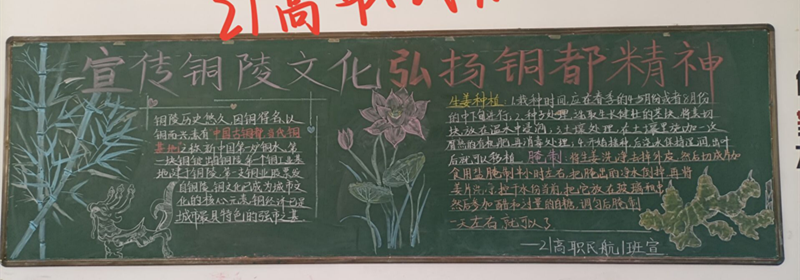 21高职民航
宣传铜陵文化弘扬铜都精神
铜陵历史悠久,因铜得名,以
铜而兴,素有中国古铜都,当代铜
基地之称,新中国第一炉铜水、第
一块铜锭出自铜陵,第一个铜工业基
地建于铜陵,第一支铜业股票发
自铜陵,铜文化已成为城市文
化的核心元素,铜经济已是
城市最具特色的强市之基
生姜种植:1.栽种时间,应在春季的4-5月份或者8月份
的中下旬进行;2.种子处理,选取生长健壮的姜块,将姜切
块,放在温水中浸泡;3.土壤处理,在土壤里施加一次
腌制:将生姜洗净去掉外皮,然后切成片加
食用盐腌制半小时左右,把腌出的净水倒掉,再将
姜片洗净,控干水份备用,把它放在玻璃和
然后参加醋和适量的白糖,调匀后腌制
一天左右就可以了
——21高职民航1班宣